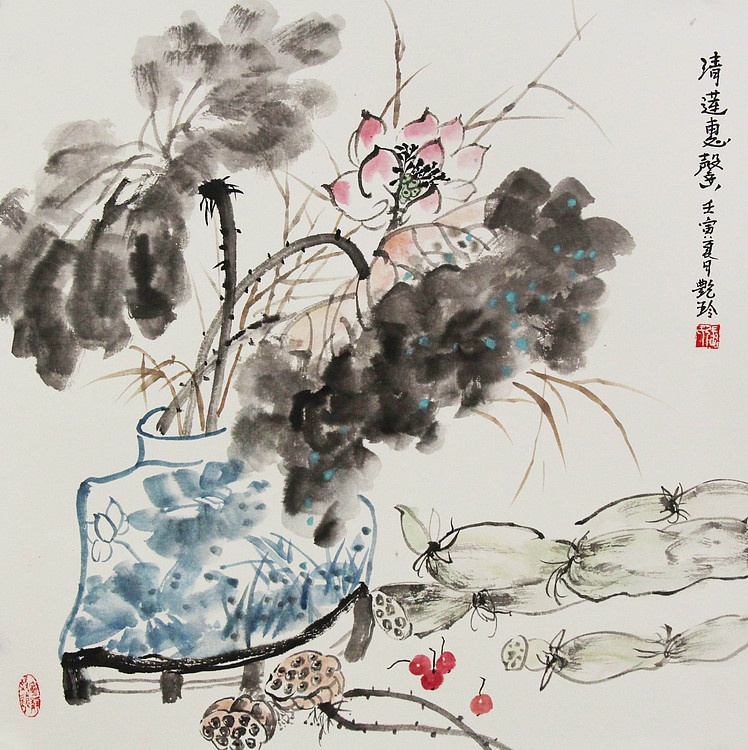 清莲惠馨 壬寅夏月艳玲